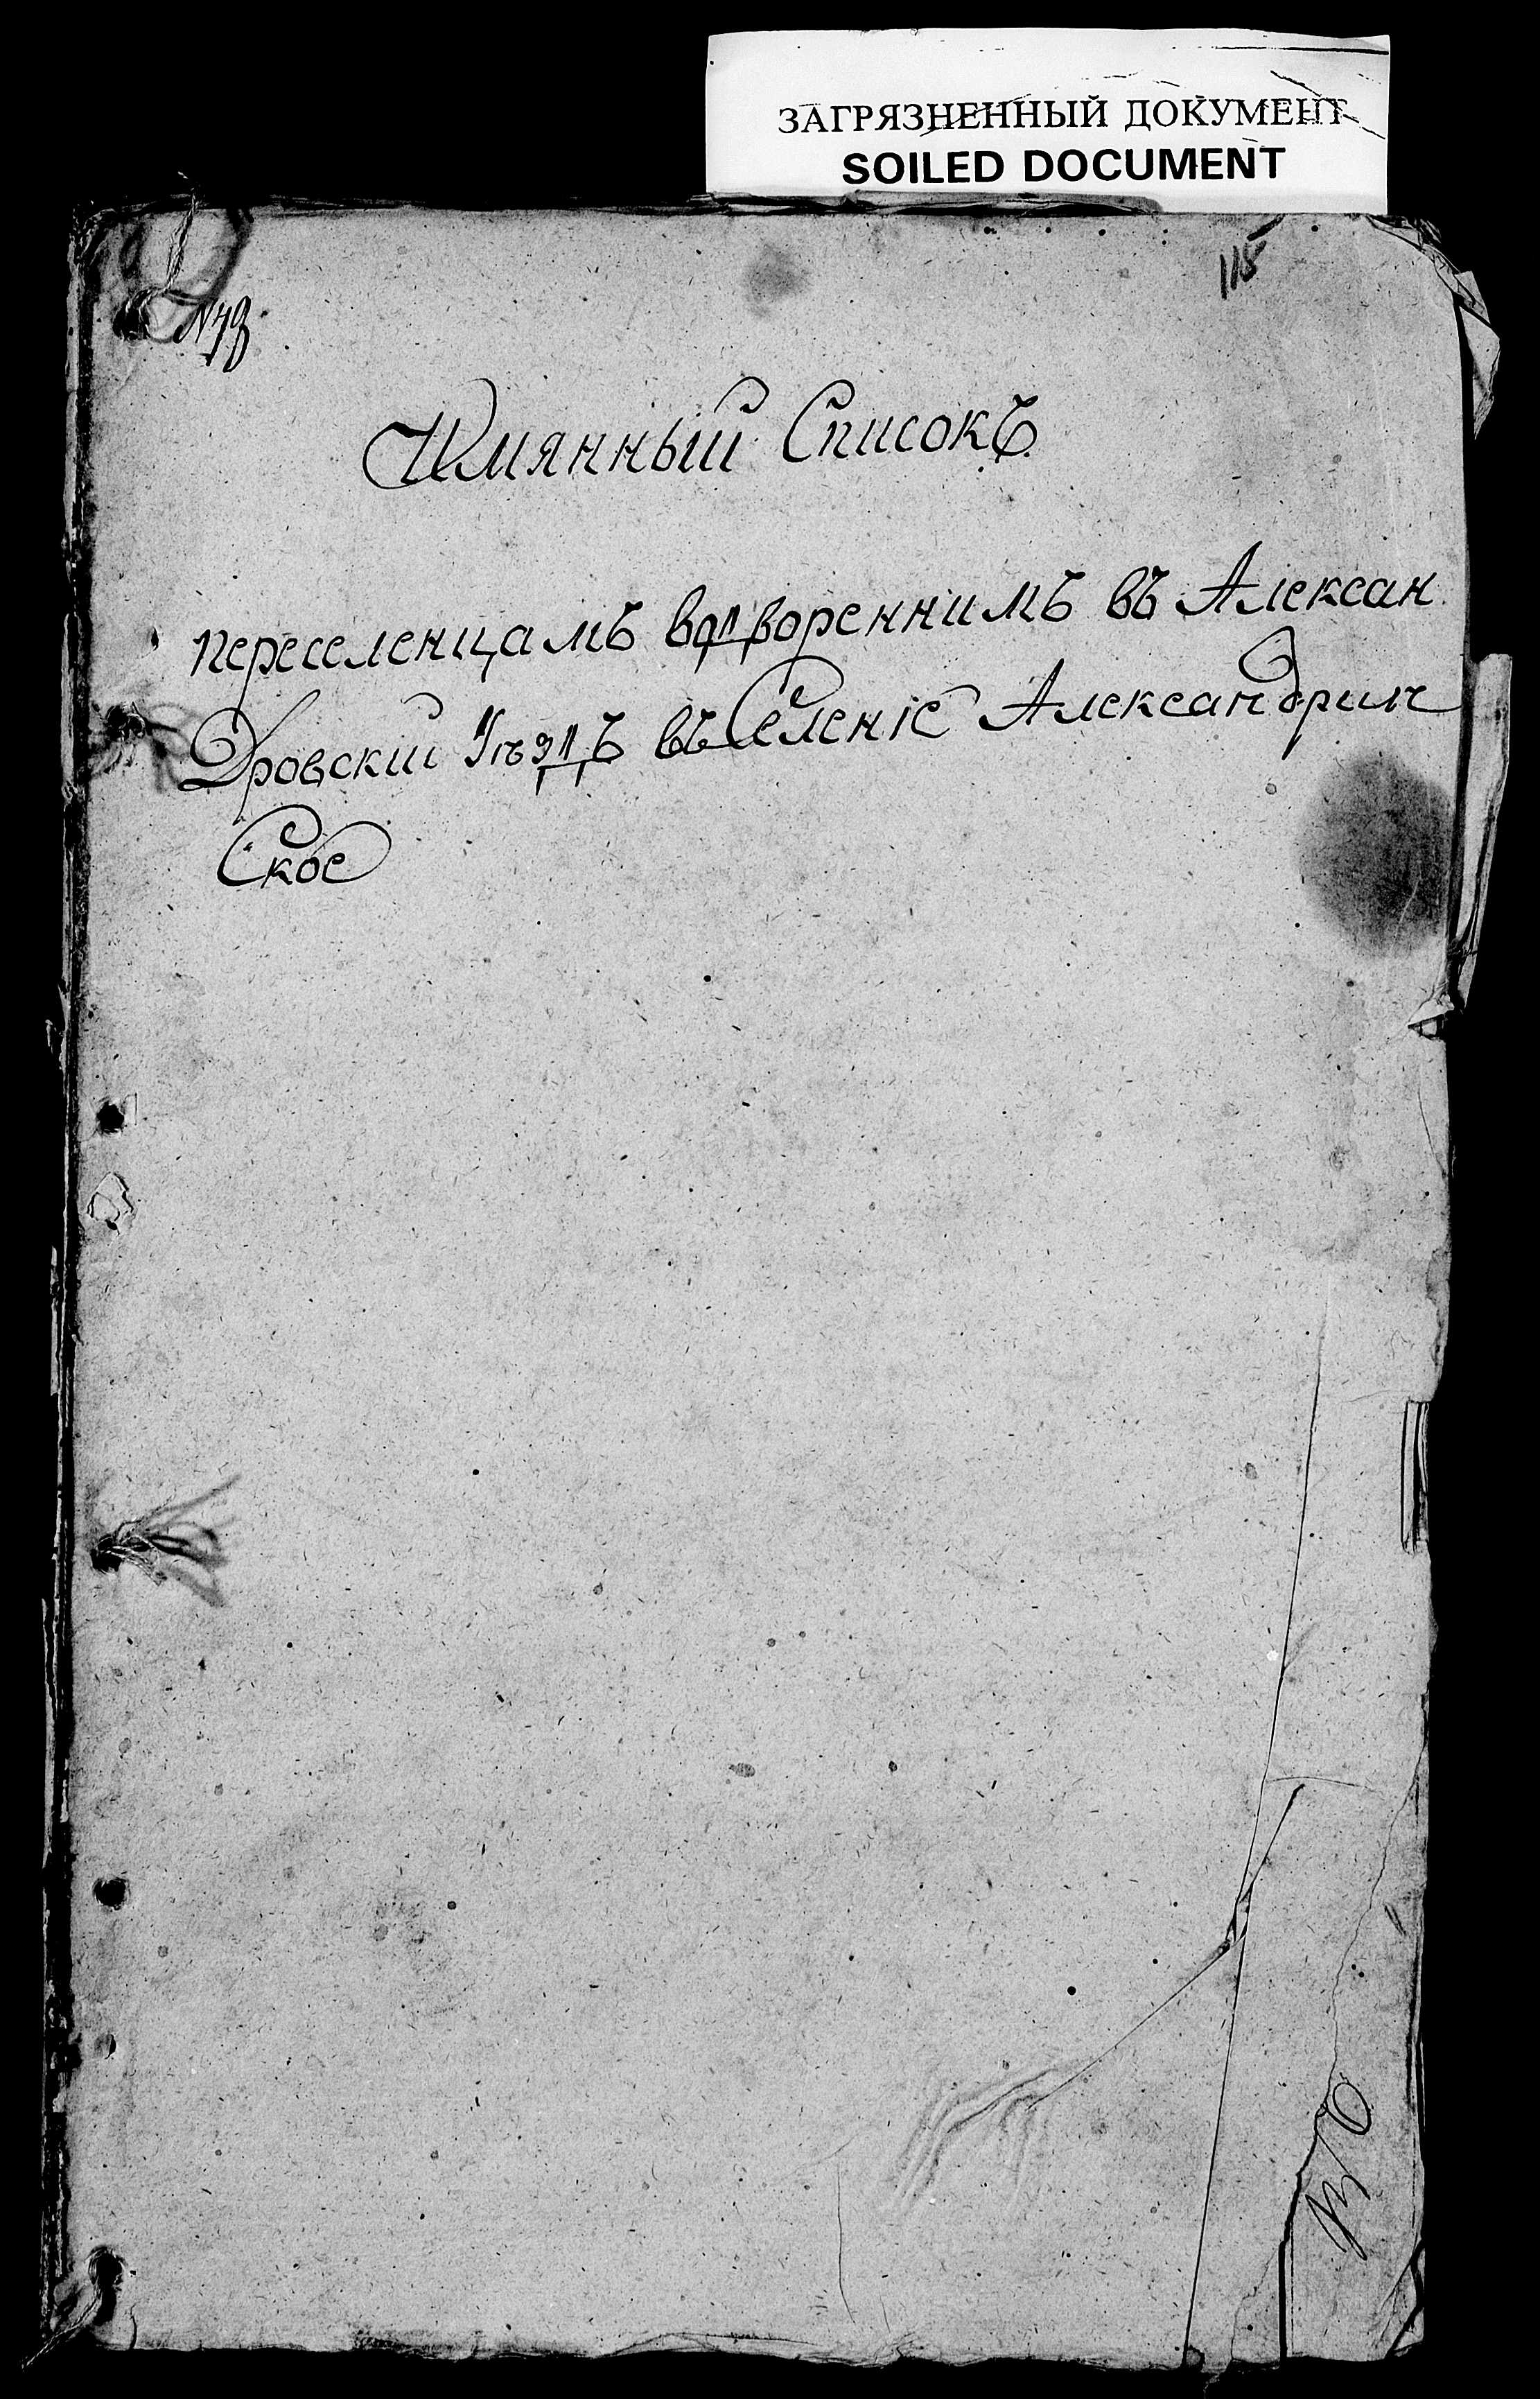 ЗАГРЯЗНЕННЫЙ ДОКУМЕНТ
SOILED DOCUMENT
115
Имянный Списокъ
переселенцамъ водвореннимъ въ Алексан
Дровскiй Уѣздъ въ Селенiе Александрин
Ское